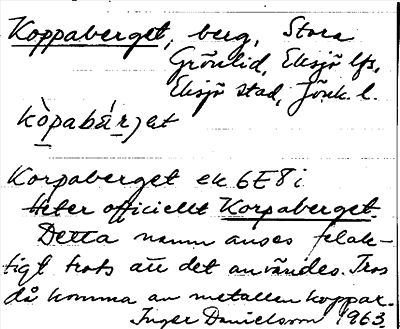 Koppaberget, berg, Stora
Grönlid, Eksjö lfs,
Eksjö stad, Jönk. l.
kòpabár)et
Korpaberget ek 6E8i
Heter officiellt Korpaberget.
Detta namn anses felak-
tigt trots att det användes. Tros
då komma av metallen koppar.
Inger Danielsson 1963.